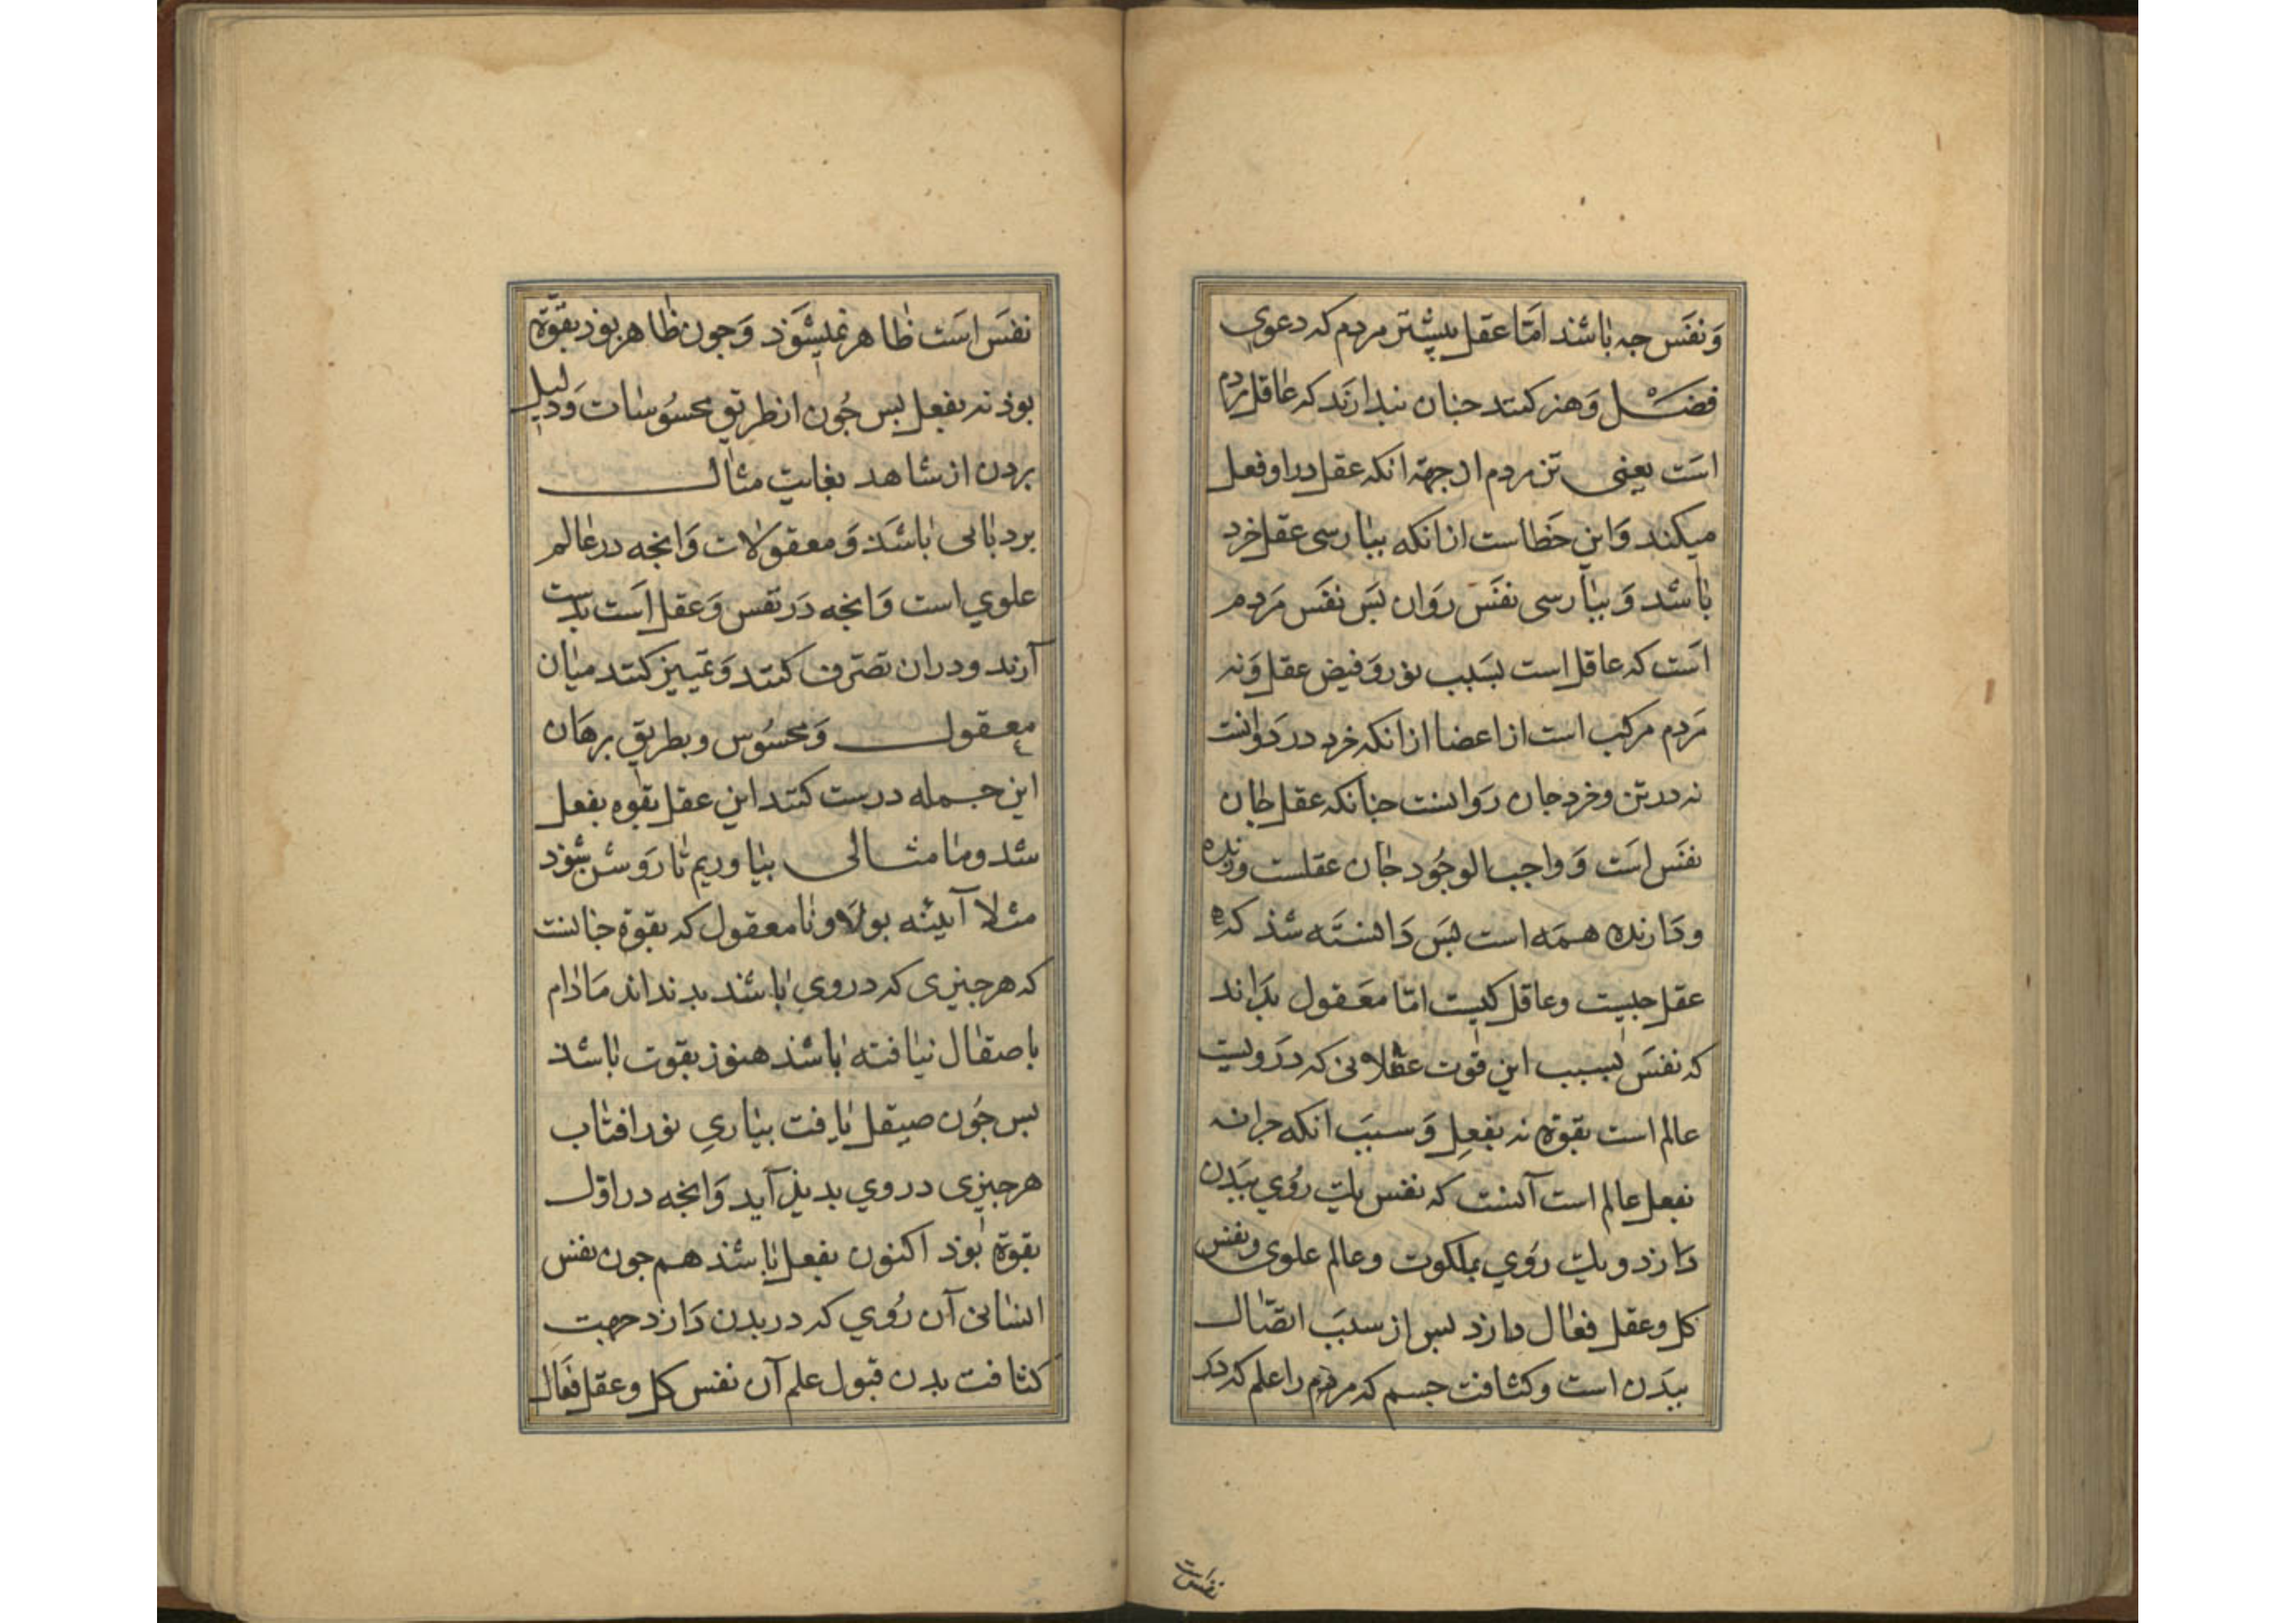 وَنفَس جه باشد امّا عقل بیشتر مردم که دعوی
فضل وَهنر کنند جنان نبدارند که عاقل مردم
است یعنی تن مردم از جهة انکه عقل در او فعل
میکند وَاین خَطاست از انکه ببارسی عقل خرد
باشد وَببارسی نفَس رَوان بَس نفَس مَردم
اَست که عاقل است بسَبب نور وَفیض عقل وَنه
مَردم مرکب است از اعضا از انکه خرد در رَوانست
نه در تن وخرد جان رَوانست جنانکه عقل جان
نفَس است وَواجب الوجُود جان عقلست و
ودَارنده همَه است بَس دَانستَه شذ که
عقل جیست وعاقل کیست امّا معَقول بدَاند
که نفسَ بسبب این قوت عقلانی که دَرویست
عالم است بقوة نه بفعِل وَسببَ انکه جرا نه
بفعل عالم است آنست که نفس یک رُوي ببَدن
دَارذ ویک رَوي بملکوت وعالم علوی ونفس
کل وعقل فعّال دارذ بس از سببَ اتصّال
ببدَن است وکثافت جسم که مردم را علم که در
نفس است
نفسَ است ظاهر نمیشَوَذ وَجون ظاهر بوذ بقوّة
بوذ نه بفعل بس جُون از طریق محسُوسات وَدلیل
بردن از شاهد بغایب مثال
برد باشَذ وَمعقولات وَانجه در عالم
علوي است وَانجه دَر نفس وَعقل است بدست
آرند ودران تصَرّف کنند وَتمییز کنند میان
معقول وَمحسُوس وبطریق برهَان
این جمله درست کنند این عقل بقوه بفعل
شد وما مثالی بیاوریم تا رَوشن شوذ
مثلا آیینه بولاد نامعقول که بقوة جنانست
که هرجیزی که در روي باشد بدنداند مَاذام
باصقال نیافته باشذ هنوز بقوت باشذ
بس جُون صیقل یافت بیاریِ نور افتاب
هرجیزی در روي بدیذ آید وَانجه در اوّل
بقوة بُوذ اکنون بفعل باشذ همجون نفس
انسانی آن رُوي که در بدن دَارذ جهت
کثافت بدن قبول علم آن نفس کل وعقل فعَال